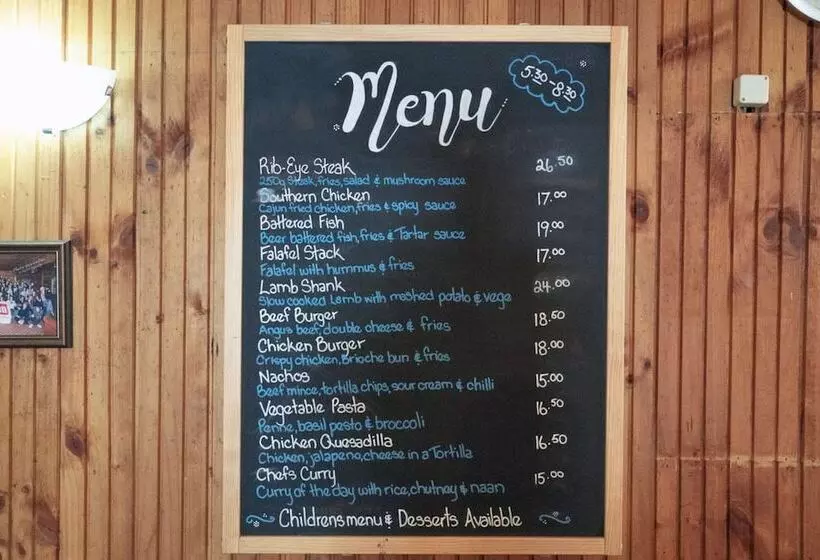 Menu
5.30-8.30
Rib-Eye Steak 26.50
250g Steak, fries, salad & mushroom sauce
Southern Chicken 17.00
Cajun fried chicken, fries & spicy sauce
Battered Fish 19.00
Beer battered fish, fries & Tartar sauce
Falafel Stack 17.00
Falafel with hummus & fries
Lamb Shank 24.00
Slow cooked Lamb with mashed potato & vege
Beef Burger 18.50
Angus beef, double cheese & fries
Chicken Burger 18.00
Crispy chicken, Brioche bun & fries
Nachos 15.00
Beef mince, tortilla chips, sour cream & chilli
Vegetable Pasta 16.50
Penne, basil pesto & broccoli
Chicken Quesadilla 16.50
Chicken, jalapeno, cheese in a Tortilla
Chefs Curry 15.00
Curry of the day with rice, chutney & naan
Childrens menu & Desserts Available